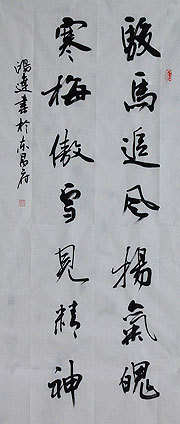 駿馬追风揚氣魄
寒梅傲雪見精神
鴻達書於东昌府